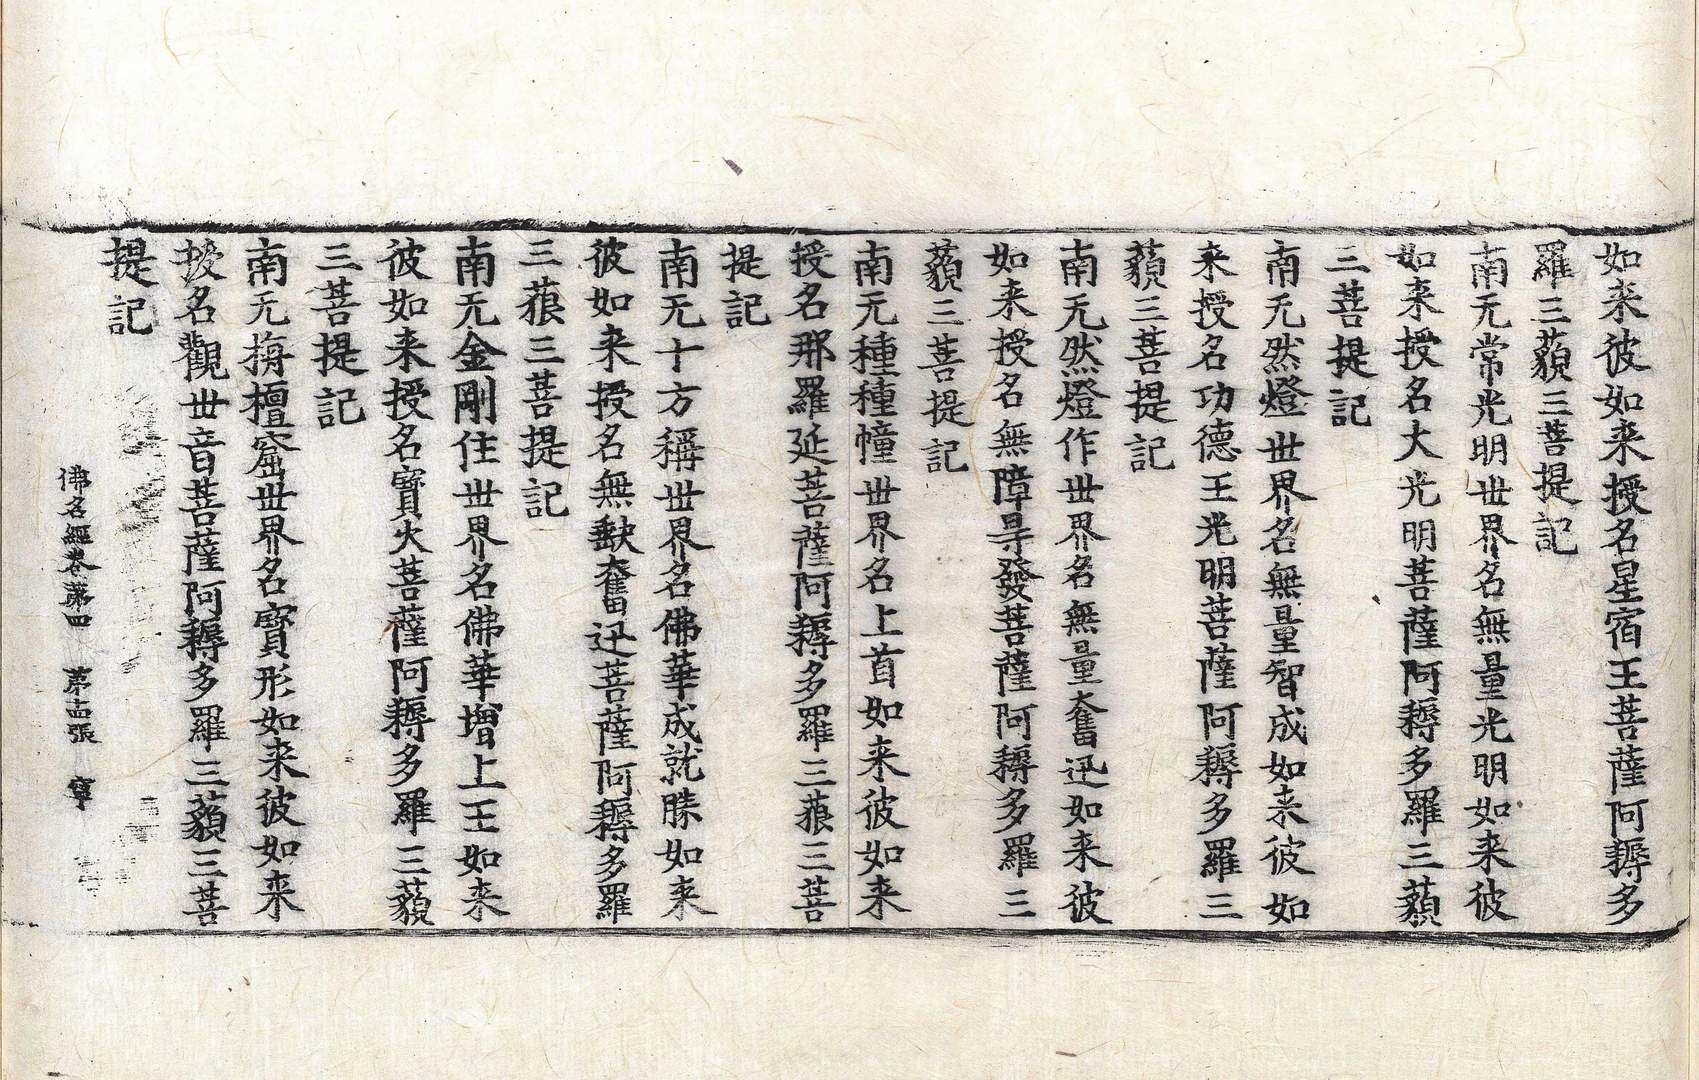 如来彼如来授名星宿王菩薩阿耨多
羅三藐三菩提記
南无常光明世界名無量光明如来彼
如来授名大光明菩薩阿耨多羅三藐
三菩提記
南无然燈世界名無量智成如来彼如
来授名功德王光明菩薩阿耨多羅三
藐三菩提記
南无然燈作世界名無量奮迅如来彼
如来授名無障㝵發菩薩阿耨多羅三
藐三菩提記
南无種種幢世界名上首如来彼如来
授名那羅延菩薩阿耨多羅三藐三菩
提記
南无十方稱世界名佛華成就勝如来
彼如来授名無㝹奮迅菩薩阿耨多羅
三藐三菩提記
南无金剛住世界名佛華增上王如来
彼如来授名寶火菩薩阿耨多羅三藐
三菩提記
南无栴檀窟世界名寶形如来彼如来
授名觀世音菩薩阿耨多羅三藐三菩
提記
佛名經卷第四 第十五張 寧